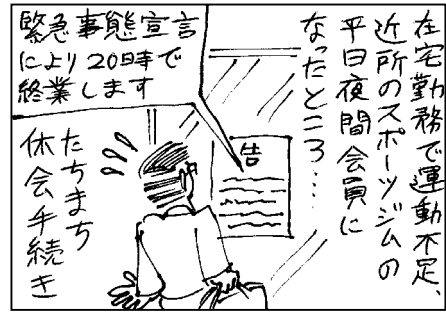 在宅勤務で運動不足、
近所のスポーツジムの
平日夜間会員に
なったところ…
告
緊急事態宣言
により20時で
終業します
たちまち
休会手続き